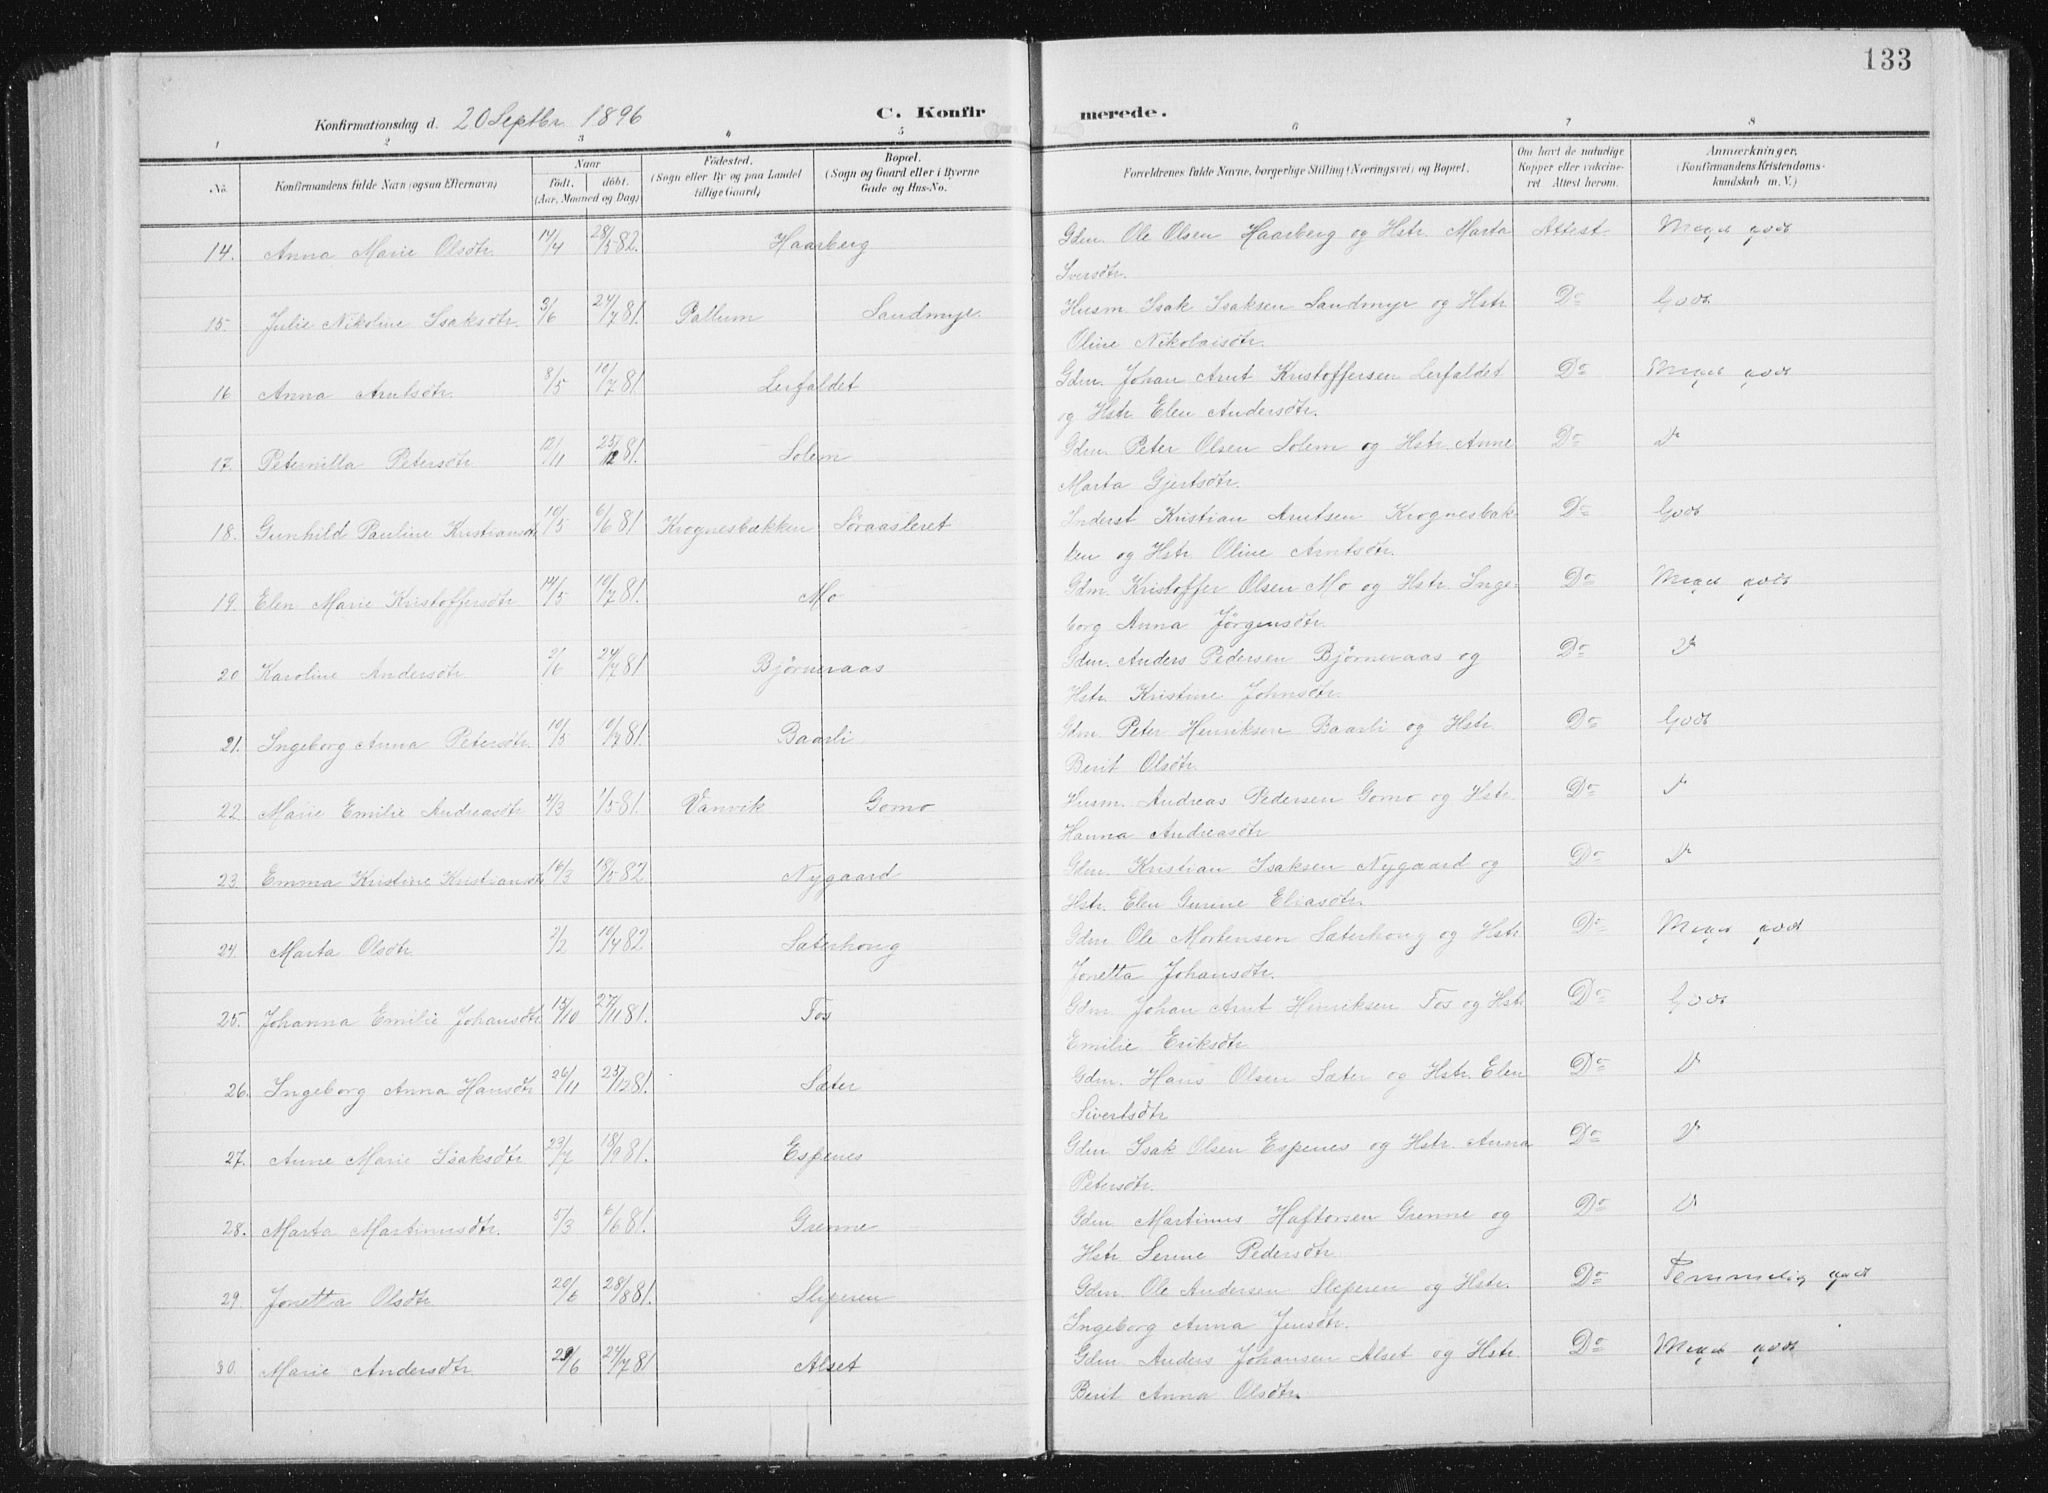 133
Konfirmationsdag d. 20 Septbr. 1896 C. Konfirmerede.
1 2 3 4 5 6 7 8
No. Konfirmandens fulde Navn (ogsaa Efternavn) Naar födt. döbt. (Aar, Maaned og Dag) Födested. (Sogn eller By og paa Landet tillige Gaard) Bopæl. (Sogn og Gaard eller i Byerne Gade og Hus-No. Forældrenes fulde Navne, borgerlige Stilling (Næringsvei) og Bopæl. Om havt de naturlige Kopper eller vakcineret. Attest herom. Anmærkninger. (Konfirmandens Kristendomskundskab m. V.)
14. Anna Marie Olsdtr. 14/4 28/5 82. Haarberg Gdm. Ole Olsen Haarberg og Hstr. Marta Attest Meget godt
Iversdtr.
15. Julie Nikoline Isaksdtr. 3/6 24/7 81. Pallum Sandmyr Husm. Isak Isaksen Sandmyr og Hstr Do Godt.
Oline Nikolaisdtr.
16 Anna Arntsdtr. 8/5 10/7 81. Lerfaldet Gdm. Johan Arnt Kristoffersen Lerfaldet Do Meget godt
og Hstr. Elen Andersdtr.
17. Peternilla Petersdtr 12/11 25/12 81. Solem Gdm. Peter Olsen Solem og Hstr. Anne Do D
Marta Gjertsdtr.
18. Gunhild Pauline Kristiansdtr 10/5 6/6 81 Krognesbækken Søraasleret Inderst Kristian Arntsen Krognesbæk- Do Godt
ken og Hstr Oline Arntsdtr.
19. Elen Marie Kristoffersdtr 14/5 10/7 81. Mo Gdm. Kristoffer Olsen Mo og Hstr. Inge- Do Meget godt
borg Anna Jørgensdtr.
20 Karoline Andersdtr 2/6 24/7 81 Bjørneraas Gdm. Anders Pedersen Bjørneraas og Do D
Hstr. Kristine Johnsdtr.
21. Ingeborg Anna Petersdtr. 10/5 10/7 81. Baarli Gdm. Peter Henriksen Baarli og Hstr. Do Godt
Berit Olsdtr.
22. Marie Emilie Andreasdtr 4/3 1/5 81. Vanvik Gomo Husm. Andreas Pedersen Gomo og Hstr. Do D
Hanna Andreasdtr
23. Emma Kristine Kristiansdtr 16/3 18/5 82 Nygaard Gdm. Kristian Isaksen Nygaard og Do D
Hstr. Elen Gurine Eliasdtr.
24. Marta Olsdtr. 2/2 10/4 82 Sæterhoug Gdm. Ole Mortensen Sæterhoug og Hstr Do Meget godt
Jonetta Johansdtr.
25. Johanna Emilie Johansdtr 15/10 27/11 81. Fos Gdm. Johan Arnt Henriksen Fos og Hstr Do Godt
Emilie Eriksdtr.
26. Ingeborg Anna Hansdtr 26/11 23/12 81. Sæter Gdm. Hans Olsen Sæter og Hstr. Elen Do D
Sivertsdtr
27. Anne Marie Isaksdtr 23/7 18/9 81. Espenes Gdm. Isak Olsen Espenes og Hstr. Anna Do D
Petersdtr.
28. Marta Martinusdtr. 5/3 6/6 81. Grenne Gdm. Martinus Haftorsen Grenne og Do D
Hstr Serine Pedersdtr.
29. Jonetta Olsdtr 20/6 28/8 81. Sliperen Gdm. Ole Andersen Sliperen og Hstr. Do Temmelig godt
Ingeborg Anna Jensdtr.
30. Marie Andersdtr 29/6 24/7 81 Alset Gdm. Anders Johansen Alset og Hstr Do Meget godt
Berit Anna Olsdtr.